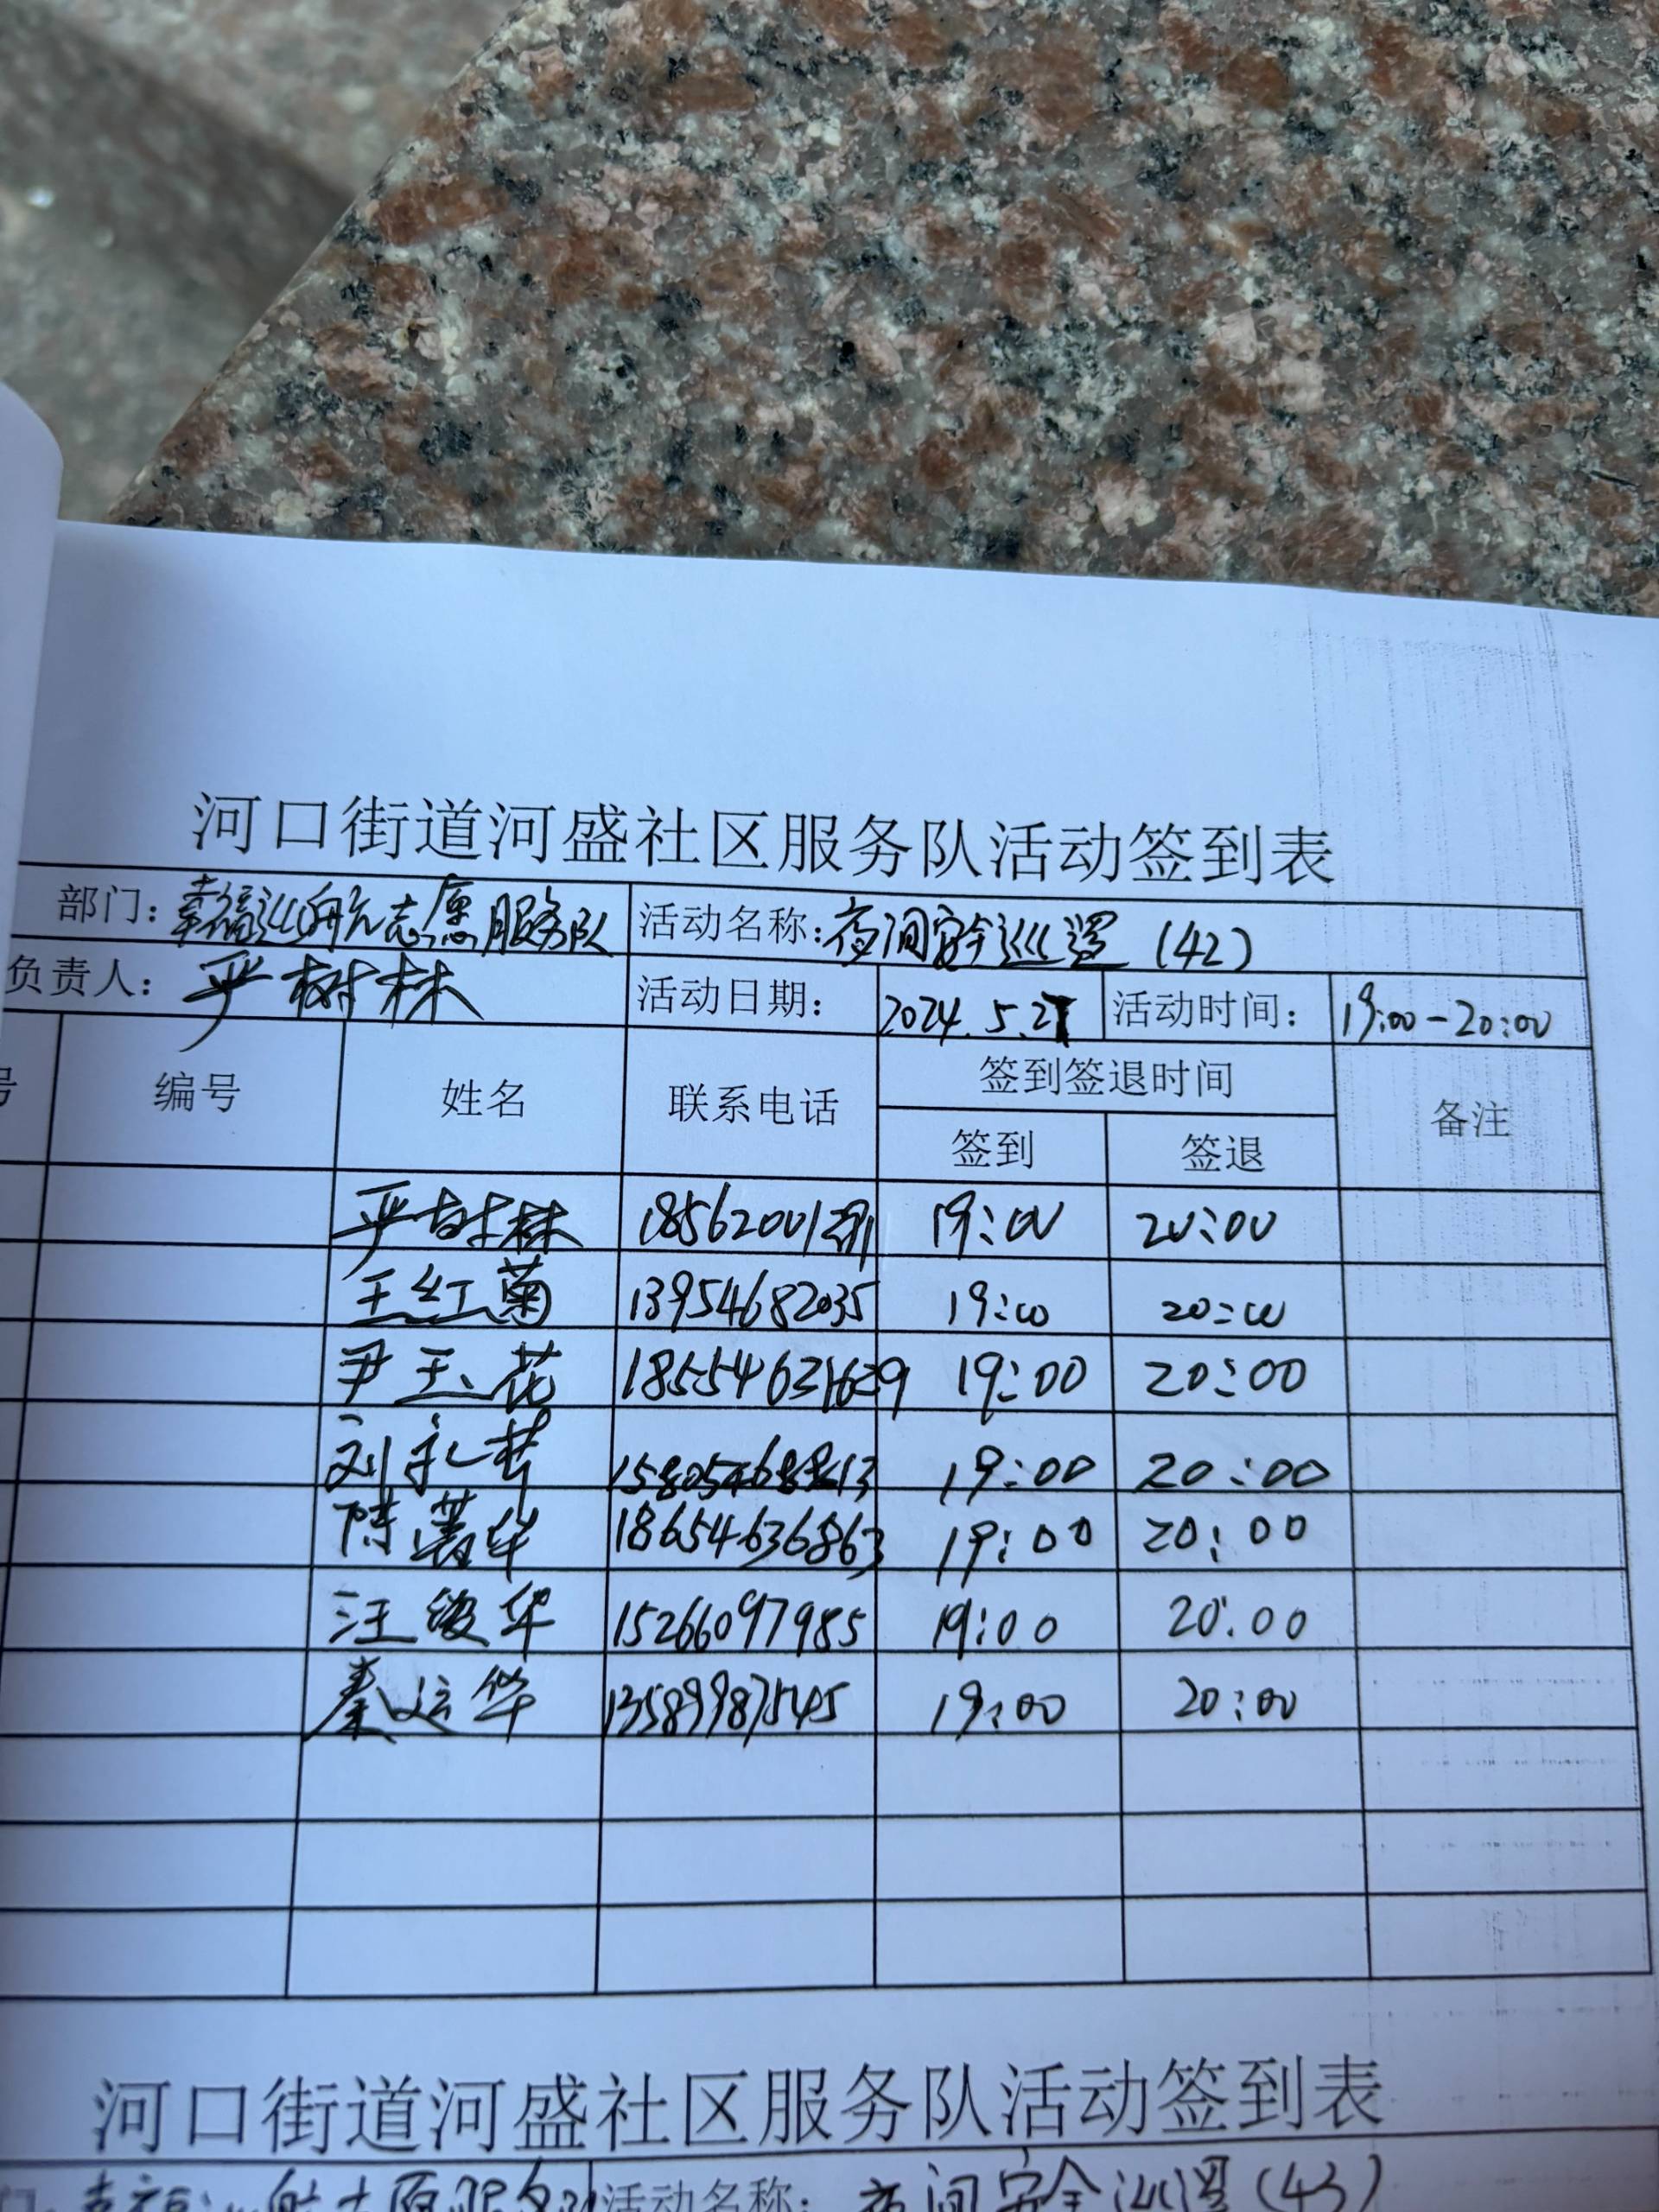 河口街道河盛社区服务队活动签到表
部门：幸福巡航志愿服务队 活动名称：夜间安全巡逻（42）
负责人：严树林 活动日期： 2024.5.27 活动时间： 19:00-20:00
号 编号 姓名 联系电话 签到签退时间 备注
签到 签退
严树林 1856200 19:00 20:00
王红菊 13954682035 19:00 20:00
尹玉花 18554631639 19:00 20:00
刘礼 19:00 20:00
陈 华 18654636863 19:00 20:00
汪俊华 15266097985 19:00 20:00
秦运华 13589987545 19:00 20:00
河口街道河盛社区服务队活动签到表
门：幸福巡航志愿服务队 活动名称：夜间安全巡逻（43）